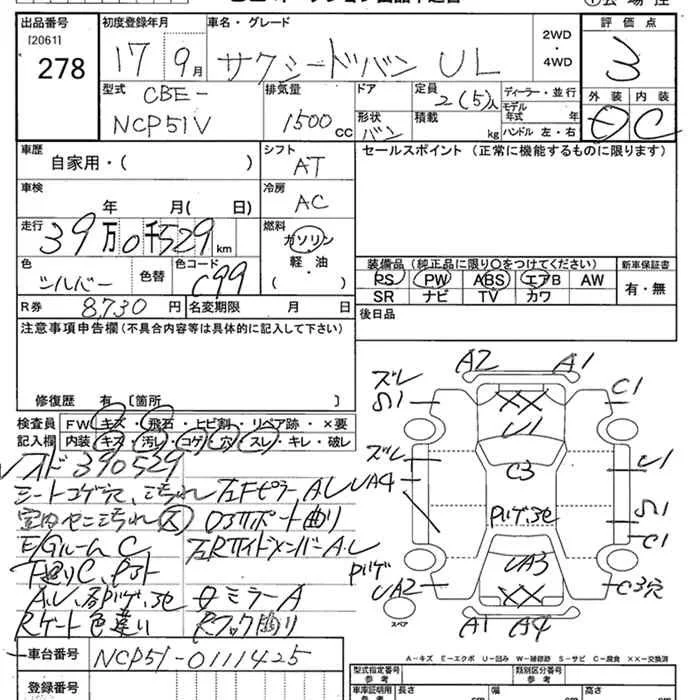 出品番号
[2061]
278
初度登録年月
17 9月
車名・グレード
サクシードバン UL
2WD
・
4WD
評価点
3
外装 内装
E C
型式
CBE-
NCP51V
排気量
1500cc
ドア
形状
バン
定員
2(5)人
積載
kg
ディーラー・並行
モデル年式 年
ハンドル 左・右
車歴
自家用・( )
シフト
AT
セールスポイント(正常に機能するものに限ります)
車検
年 月( 日)
冷房
AC
走行
39万0千529km
燃料
ガソリン
軽・油
( )
色
シルバー
色替
色コード
C99
装備品(純正品に限り〇をつけてください)
PS PW ABS エアB AW
SR ナビ TV カワ
新車保証書
有・無
R券 8,730円
名変期限 月 日
後日品
注意事項申告欄(不具合内容等は具体的に記入して下さい)
修復歴 有〔箇所 〕
検査員
記入欄
FW キズ・飛石・ヒビ割・リペア跡・×要
内装 キズ・汚レ・コゲ・穴・スレ・キレ・破レ
390529
シートコゲ穴、こ汚れ
室内ヤニ汚れ 大
E/Gルーム C
下廻りC、
左Fピラー A.U
ロアサポート曲り
左Rサイドメンバー A.U
ミラーA
Rゲート色違い
Rフック曲り
A2 A1
ズレ
C1
U1
ズレ
C3
UA4
U1
C1
UA2
UA3
C3穴
A1 A4
XX
XX
スペア
A-キズ E-エクボ U-凹み W-補修跡 S-サビ C-腐食 XX-交換済
車台番号
NCP51-0111425
登録番号
型式指定番号
類別区分番号
車庫証明用
長さ cm
幅 cm
高さ cm